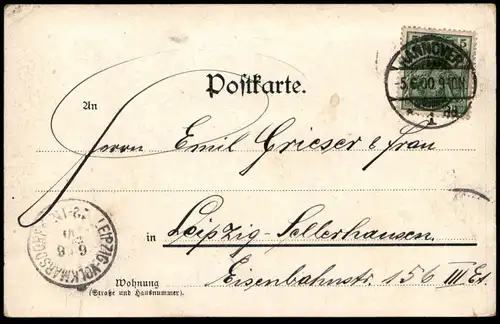 Postkarte.
HANNOVER
5.6.00 9-10N
* 1
5
An
Herrn Emil Grieser & Frau
LEIPZIG-VOLKMARSDORF
6 6
in Leipzig-Sellerhausen
Eisenbahnstr. 156 III Et.
Wohnung
(Straße und Hausnummer).